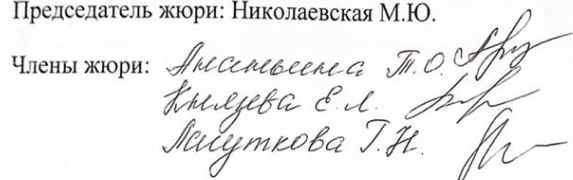 Председатель жюри: Николаевская М.Ю.
Члены жюри: Ананьина Т.О.
Князева Е.Л.
Лагуткова Г.Н.